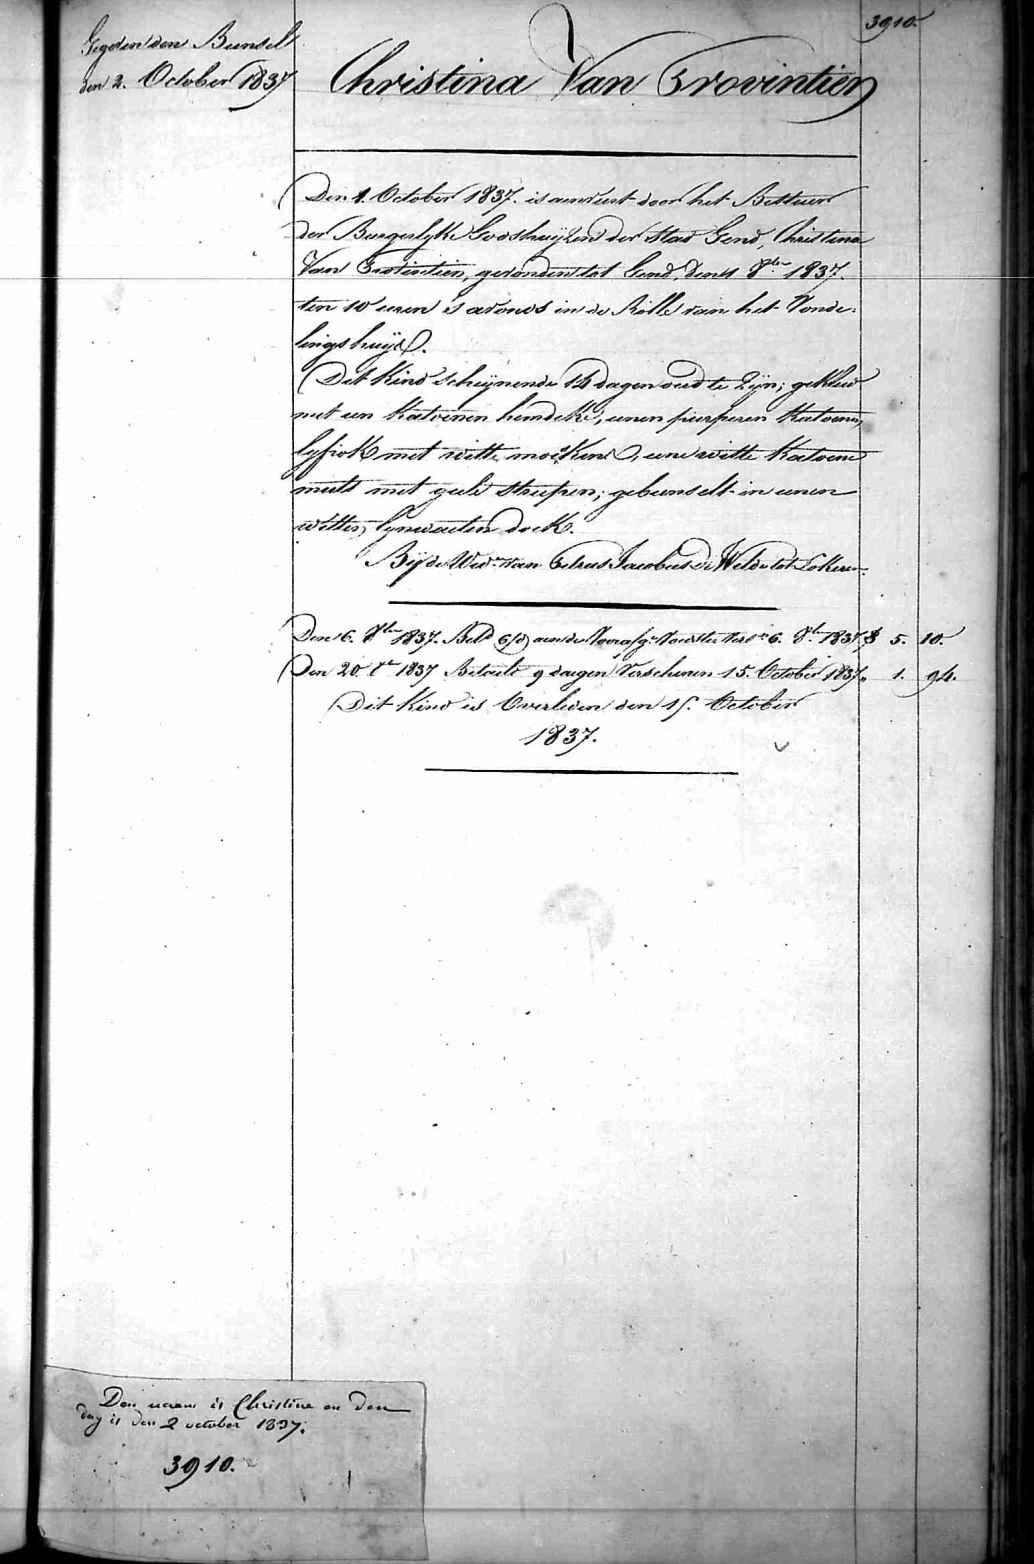 3910.
Gegeven den Bunsel
den 2. October 1837
Christina Van Provintien
Den 1. October 1837. is aenveirt door het Bestuur
der Burgerlyke Godshuyzen der stad Gend, Christina
Van Provintien, gevonden tot Gend, den 1 8ber 1837.
ten 10 uren 's avonds in de Rolle van het Vonde-
lingshuys.
Dit Kind scheynende 14 dagen oud te zyn; gekleed
met een Katoenen hemdeke, eenen purperen Katoenen
lyfrok met witte mouwkens, eene witte Katoene
muts met geele streepen; gebunselt in eenen
witten lynwaeten doek.
Bij de Wed. van Petrus Jacobus De Wilde tot Lokeren.
Den 6. 8ber 1837. Betd aen de Voor 6. 8br 1837 5. 10.
Den 20. 8r 1837 Betaelt 9 dagen Verschenen 15. October 1837 " 1. 94.
Dit Kind is Overleden den 15. October
1837.
Den naem is Christine en den
dag is den 2 october 1837.
3910.